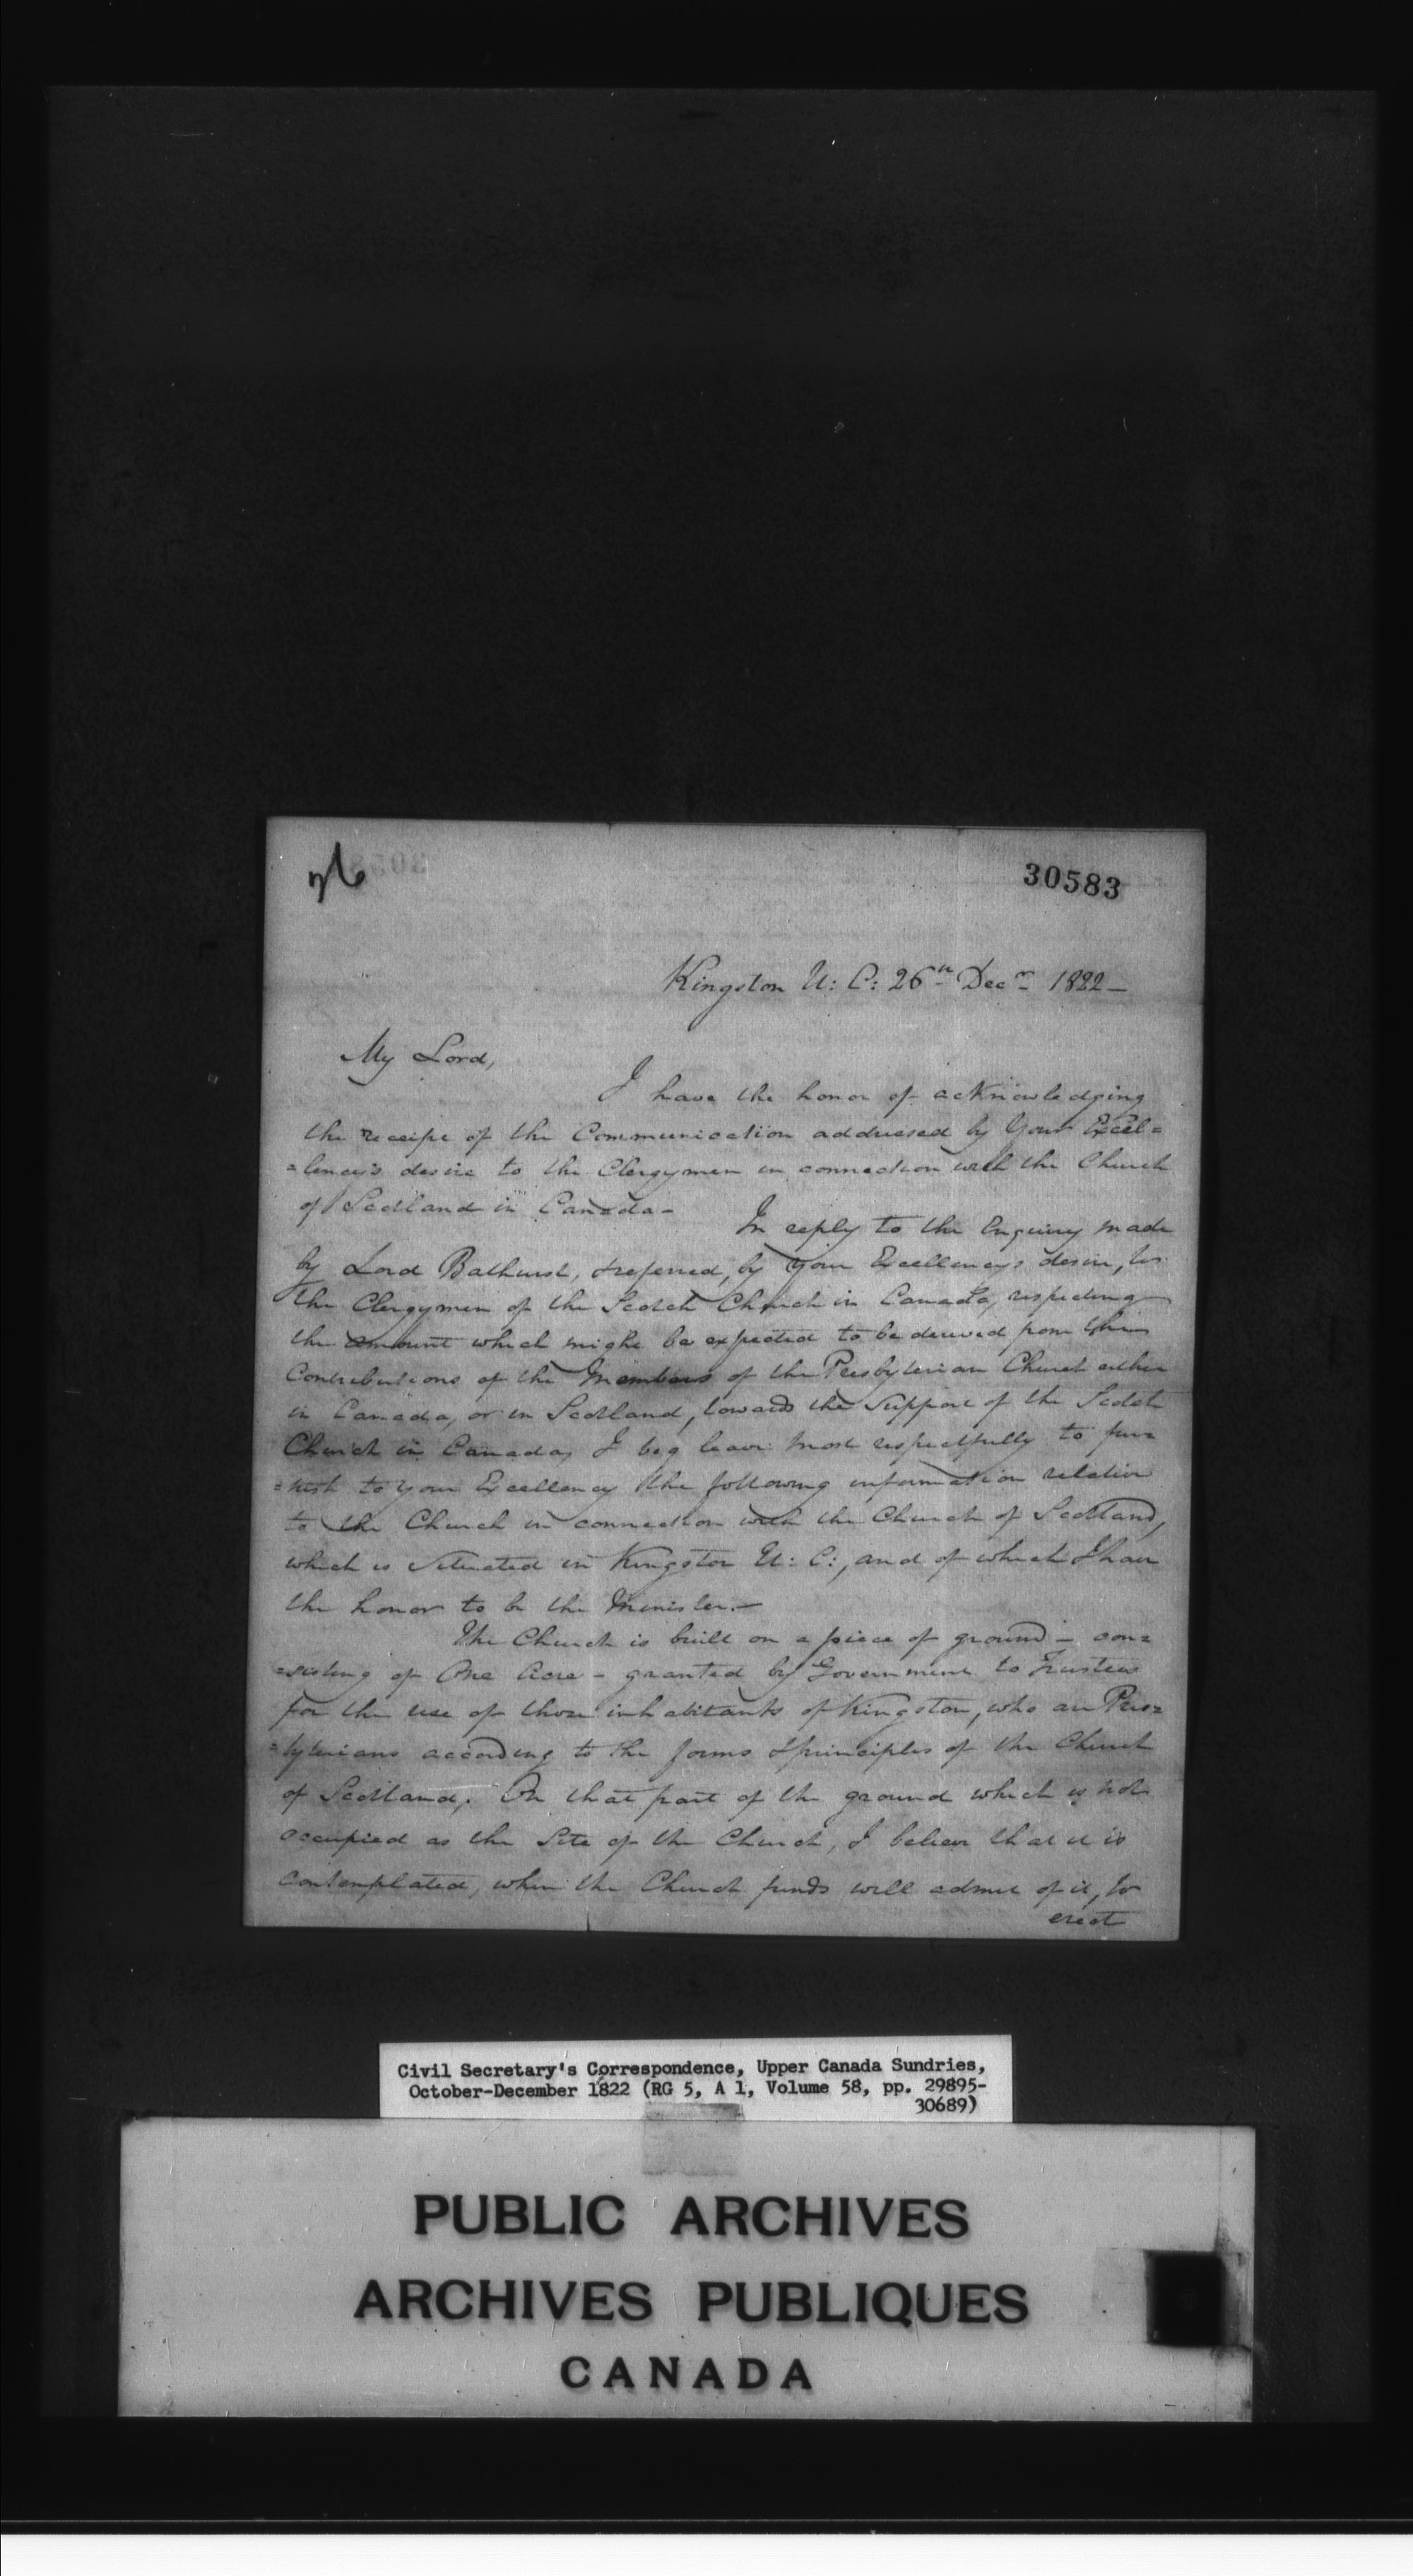 30583
Kingston U: C: 26th Decr 1822 —
My Lord,
I have the honor of acknowledging
the receipt of the Communication addressed by Your Excel=
=lency's desire to the Clergymen in connection with the Church
of Scotland in Canada —
In reply to the Enquiry made
by Lord Bathurst, & referred, by Your Excellency's desire, to
the Clergymen of the Scotch Church in Canada, respecting
the amount which might be expected to be derived from the
Contributions of the Members of the Presbyterian Church either
in Canada, or in Scotland, towards the Support of the Scotch
Church in Canada, I beg leave most respectfully to fur=
=nish to Your Excellency the following information relative
to the Church in connection with the Church of Scotland,
which is situated in Kingston U: C:, and of which I have
the honor to be the Minister. —
The Church is built on a piece of ground — con=
=sisting of One Acre — granted by Government to Trustees
for the use of those inhabitants of Kingston, who are Pres=
=byterians according to the forms & principles of the Church
of Scotland. On that part of the ground which is not
occupied as the Site of the Church, I believe that it is
contemplated, when the Church funds will admit of it, to
erect
Civil Secretary's Correspondence, Upper Canada Sundries,
October-December 1822 (RG 5, A 1, Volume 58, pp. 29895-
30689)
PUBLIC ARCHIVES
ARCHIVES PUBLIQUES
CANADA